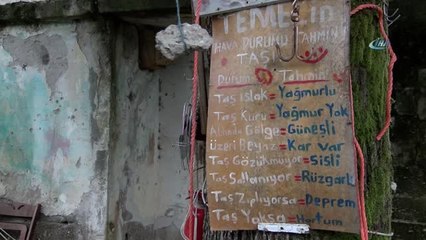 TEMEL'İN
HAVA DURUMU TAHMİN
TAŞI
DURUM TAHMİN
Taş Islak = Yağmurlu
Taş Kuru = Yağmur Yok
Altında Gölge = Güneşli
Üzeri Beyaz = Kar var
Taş Gözükmüyor = Sisli
Taş Sallanıyor = Rüzgarlı
Taş Zıplıyorsa = Deprem
Taş Yoksa = Hortum